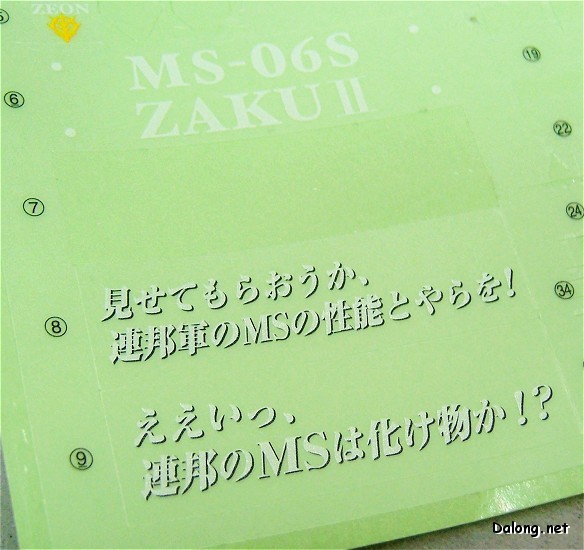 ZEON
MS-06S
ZAKU II
⑥
⑦
⑧
見せてもらおうか、
連邦軍のMSの性能とやらを!
⑨
ええいっ、
連邦のMSは化け物か!?
⑲
㉒
㉔
㉞
Dalong.net